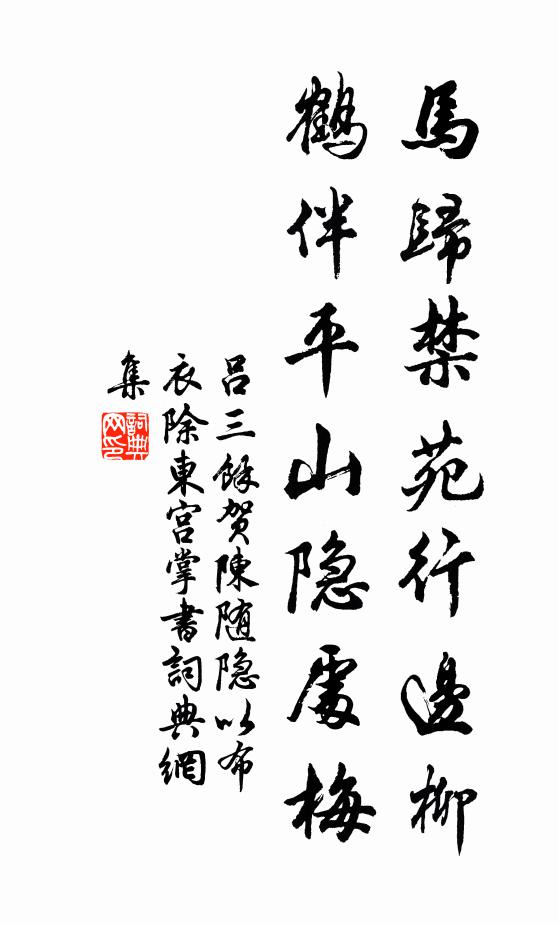 馬歸禁苑行邊柳
鶴伴平山隐處梅
呂三餘賀陳随隐以布
衣除東宮掌書詞典網
集
詞典
网印